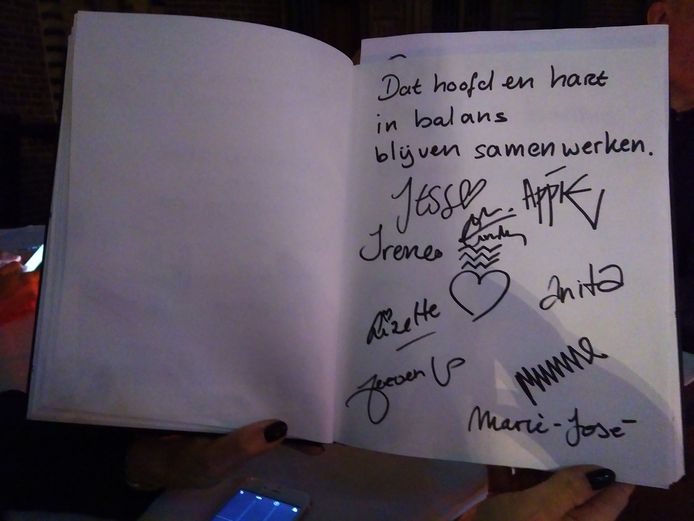 Dat hoofd en hart
in balans
blijven samenwerken.
Jess
APPIE
Irene
Anita
Lizette
Jeroen
Marie-José